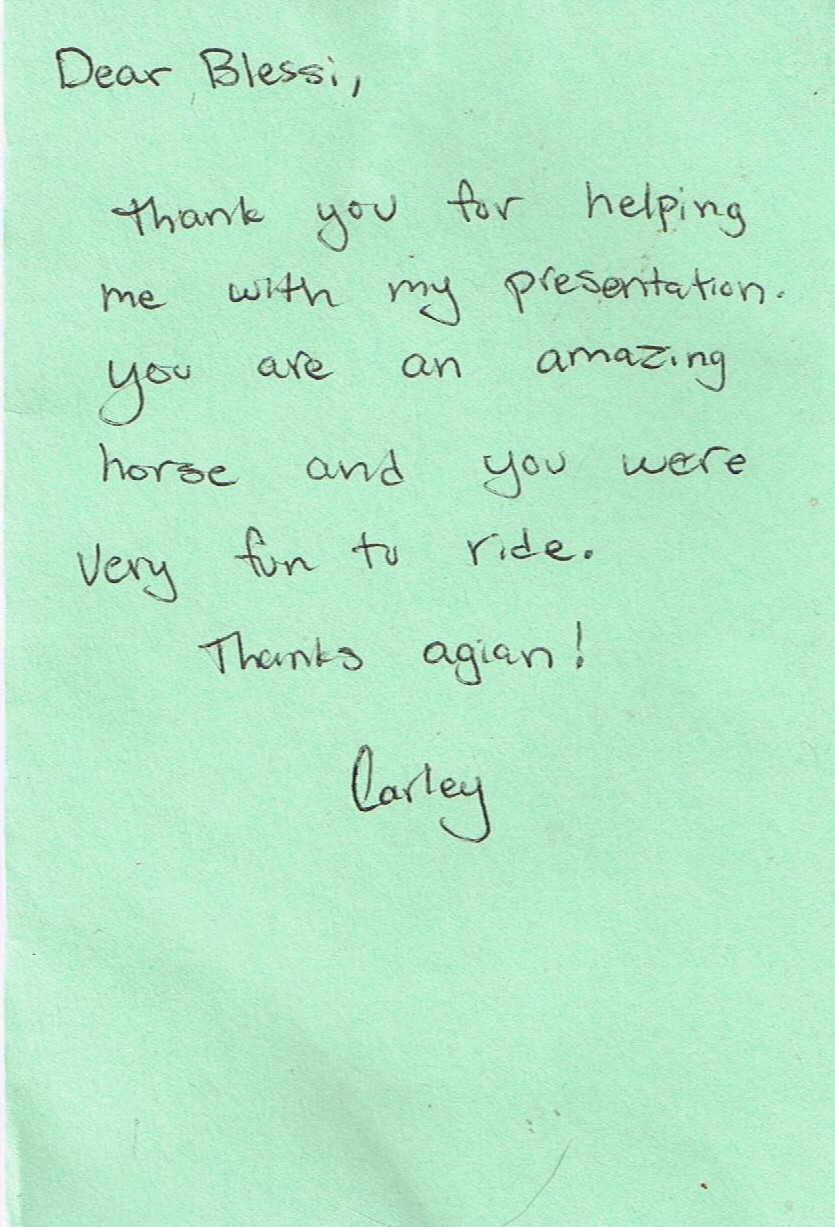 Dear Blessi,
Thank you for helping
me with my presentation.
you are an amazing
horse and you were
very fun to ride.
Thanks agian!
Carley